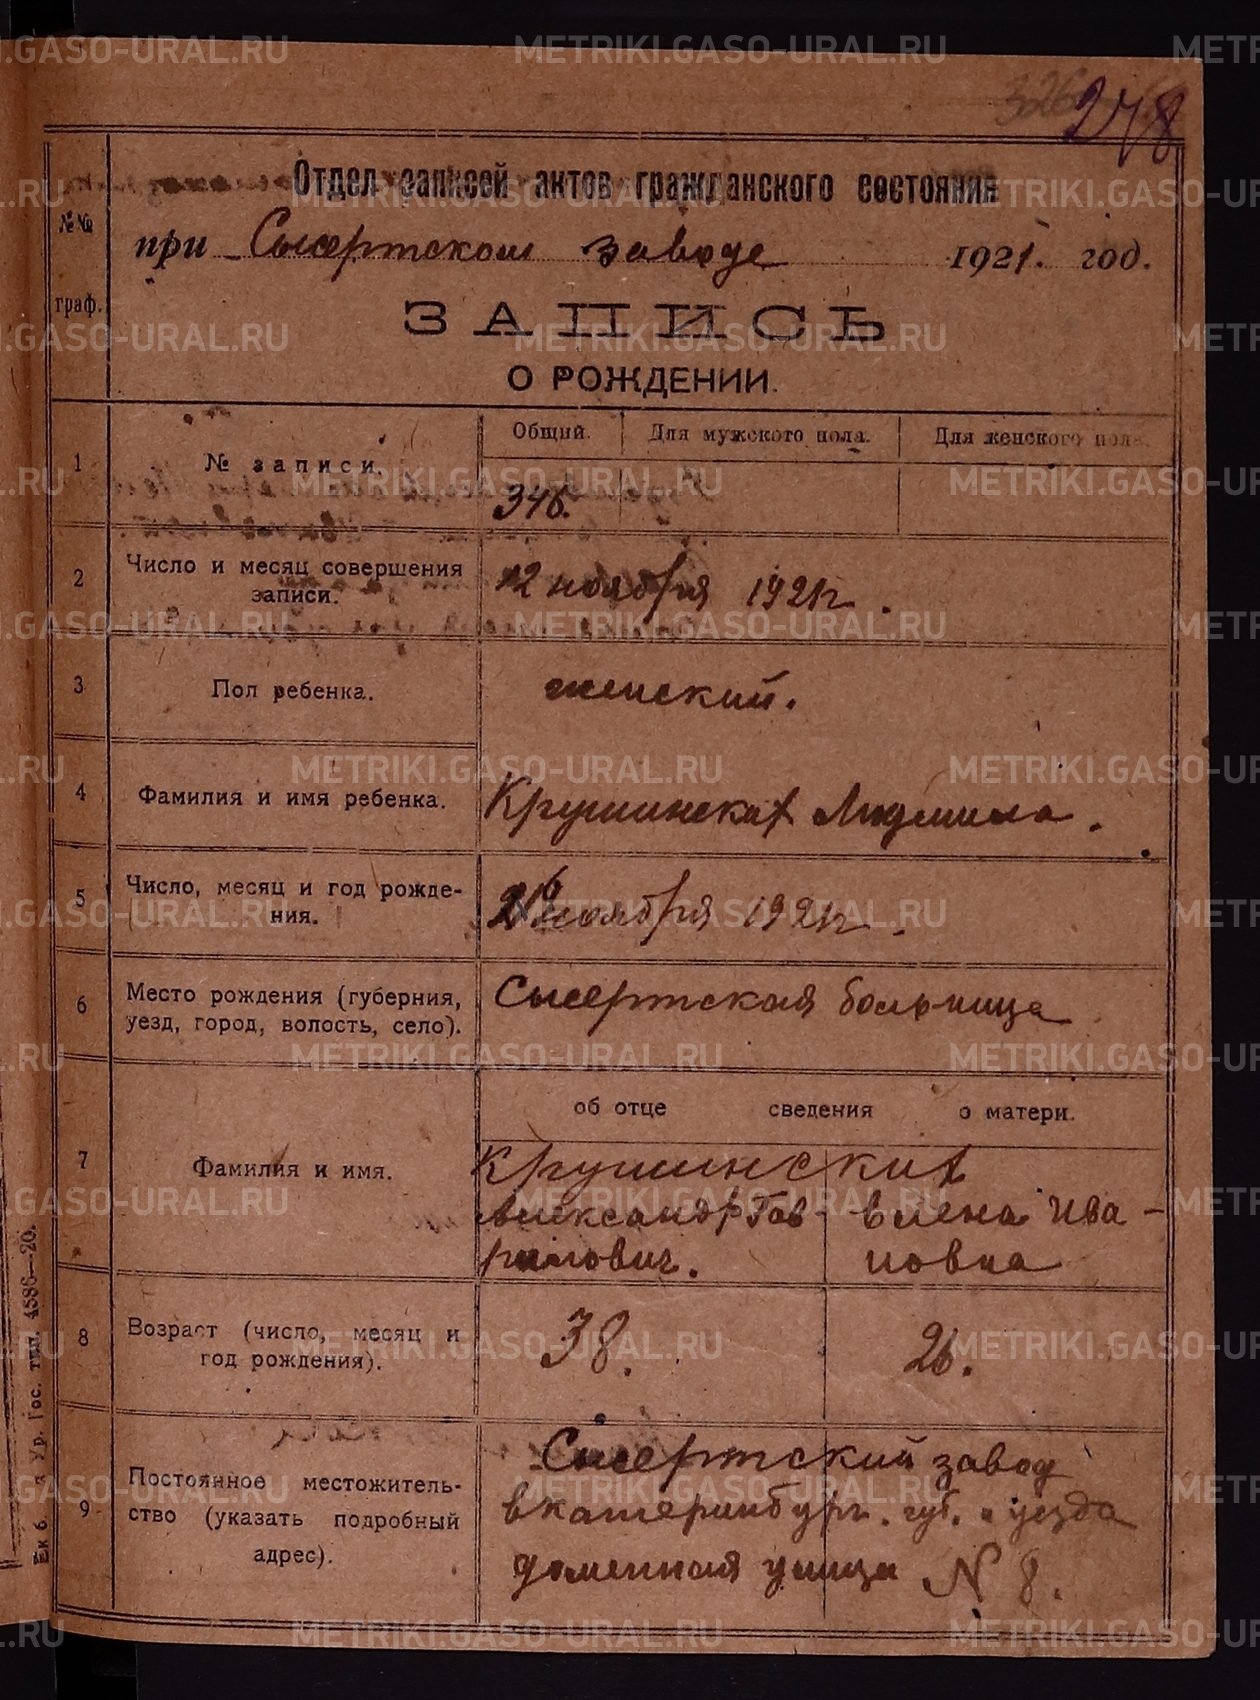 278
Отдел записей актов гражданского состояния
№№ граф.
при Сысертском заводе 1921. год.
ЗАПИСЬ
О РОЖДЕНИИ.
1 № записи. Общий. Для мужского пола. Для женского пола.
346.
2 Число и месяц совершения записи.
12 ноября 1921 г.
3 Пол ребенка.
женский.
4 Фамилия и имя ребенка.
Крушинская Людмила.
5 Число, месяц и год рожде-
ния.
ноября 1921 г.
6 Место рождения (губерния,
уезд, город, волость, село).
Сысертская больница
об отце сведения о матери.
7 Фамилия и имя.
Крушинския
Александр Гав
рилович.
Елена Ива-
новна
8 Возраст (число, месяц и
год рождения).
38.
26.
9 Постоянное местожитель-
ство (указать подробный
адрес).
Сысертский завод
Екатеринбург. губ. и уезда
Доменная улица N 8.
Ур. Гос. тип. 4586—20.
METRIKI.GASO-URAL.RU